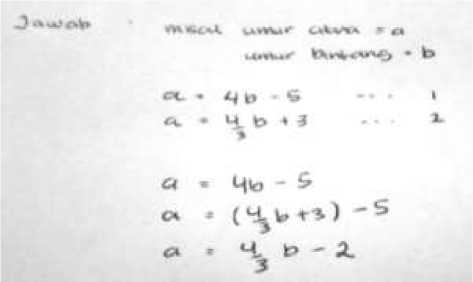 Jawab : misal umur citra = a
umur bintang = b
a = 4b - 5 .... 1
a = 4/3 b + 3 .... 2
a = 4b - 5
a = (4/3 b + 3) - 5
a = 4/3 b - 2